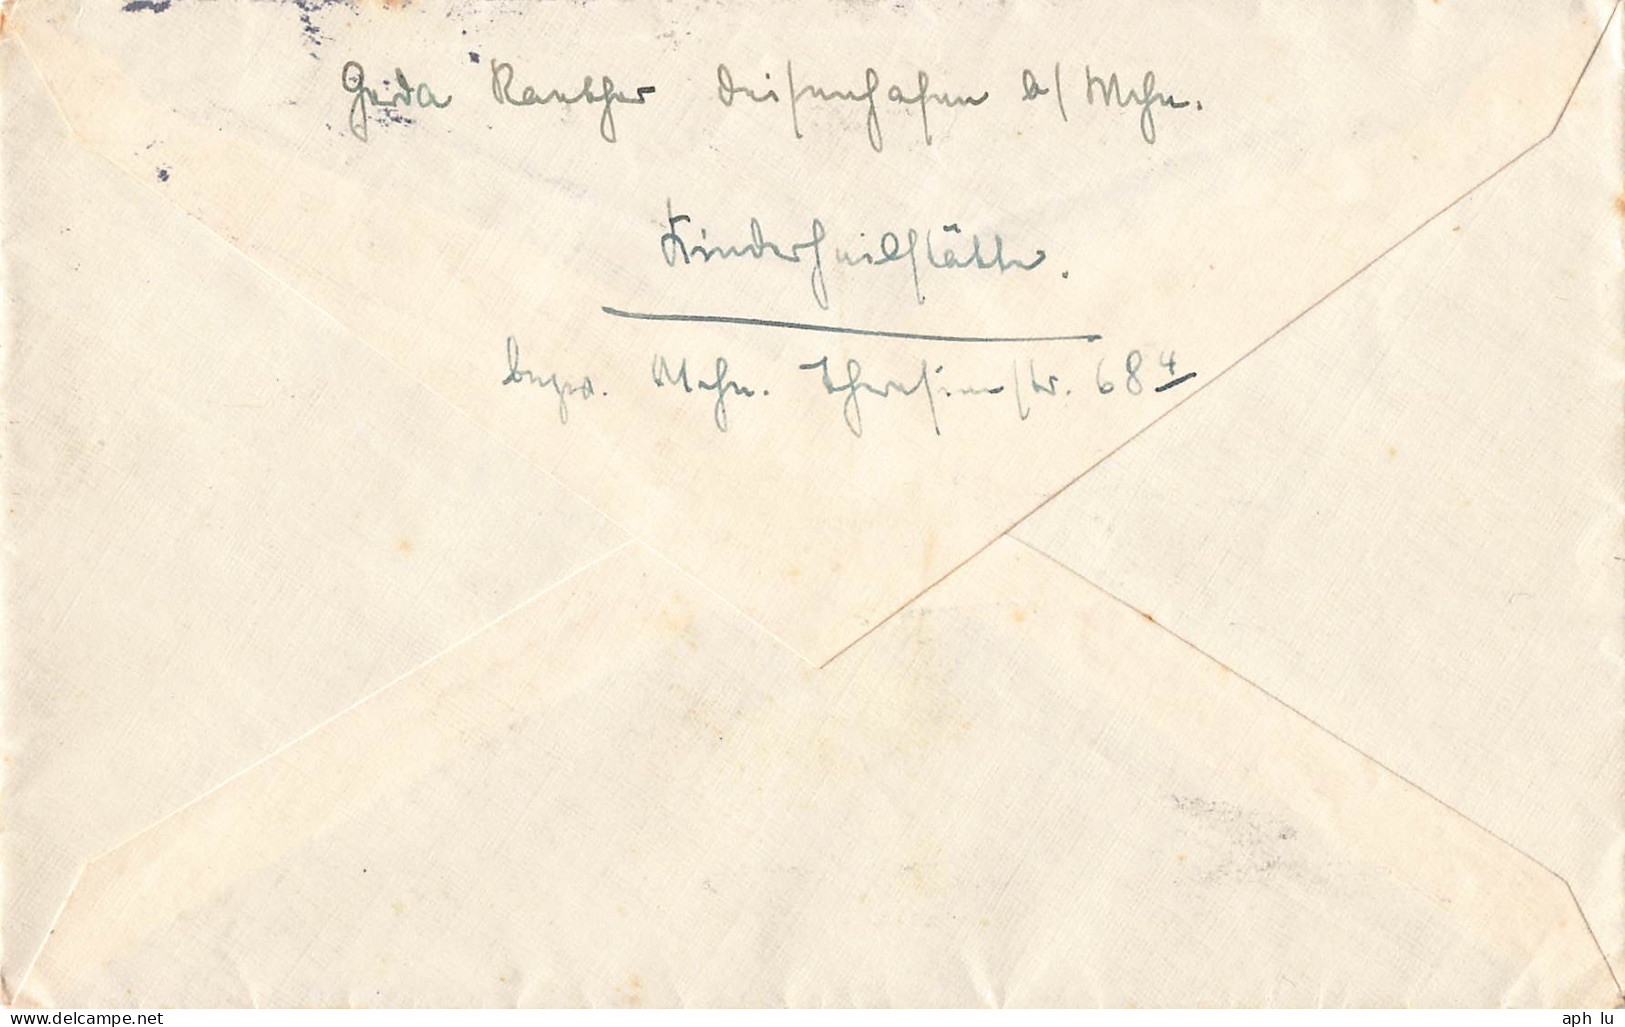 Gerda Rauther Deisenhofen b/ Mchn.
Kinderheilstätte.
bezw. Mchn. Theresienstr. 68 4
www.delcampe.net
aph_lu